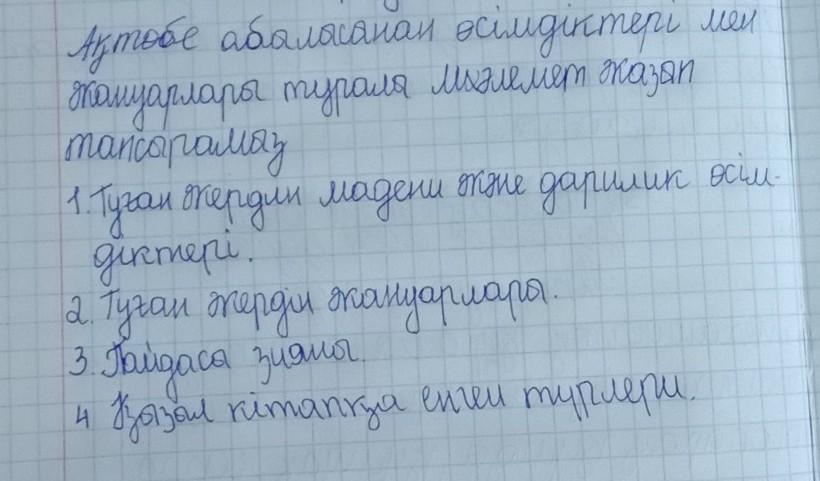 Ақтөбе абаласанан өсімдіктері мен
жануарлары турала мәлемет жазып
тапсырамыз
1. Туған жердин мадени және дарилик өсім-
діктері.
2. Туған жердің жануарлары.
3. Пайдаса зияны.
4 Қызыл кітапқа енген түрлери.